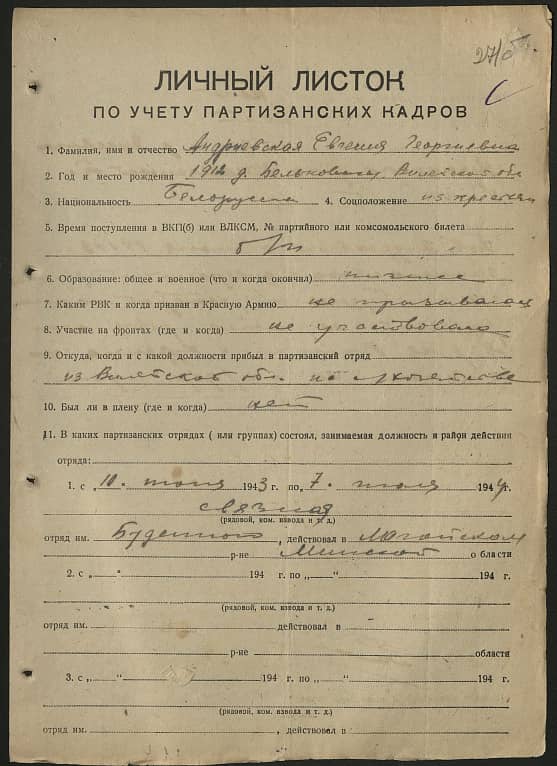 ЛИЧНЫЙ ЛИСТОК
ПО УЧЕТУ ПАРТИЗАНСКИХ КАДРОВ
1. Фамилия, имя и отчество Андриевская Евгения Георгиевна
2. Год и место рождения 1912 д. Вилейской обл
3. Национальность Белорусска 4. Соцположение из крестьян
5. Время поступления в ВКП(б) или ВЛКСМ, № партийного или комсомольского билета
б/п
6. Образование: общее и военное (что и когда окончил) низшее
7. Каким РВК и когда призван в Красную Армию не призывалась
8. Участие на фронтах (где и когда) не участвовала
9. Откуда, когда и с какой должности прибыл в партизанский отряд
из Вилейской обл. по
10. Был ли в плену (где и когда) нет
11. В каких партизанских отрядах (или группах) состоял, занимаемая должность и район действия
отряда:
1. с „10. июня 1943 г. по „7. июля 1944 г.
связная
(рядовой, ком. взвода и т. д.)
отряд им. Буденного, действовал в Логойском
р-не Минской области
2. с „ “ 194 г. по „ “ 194 г.
(рядовой, ком. взвода и т. д.)
отряд им. действовал в
р-не области
3. с „ “ 194 г. по „ “ 194 г.
(рядовой, ком. взвода и т. д.)
отряд им. , действовал в